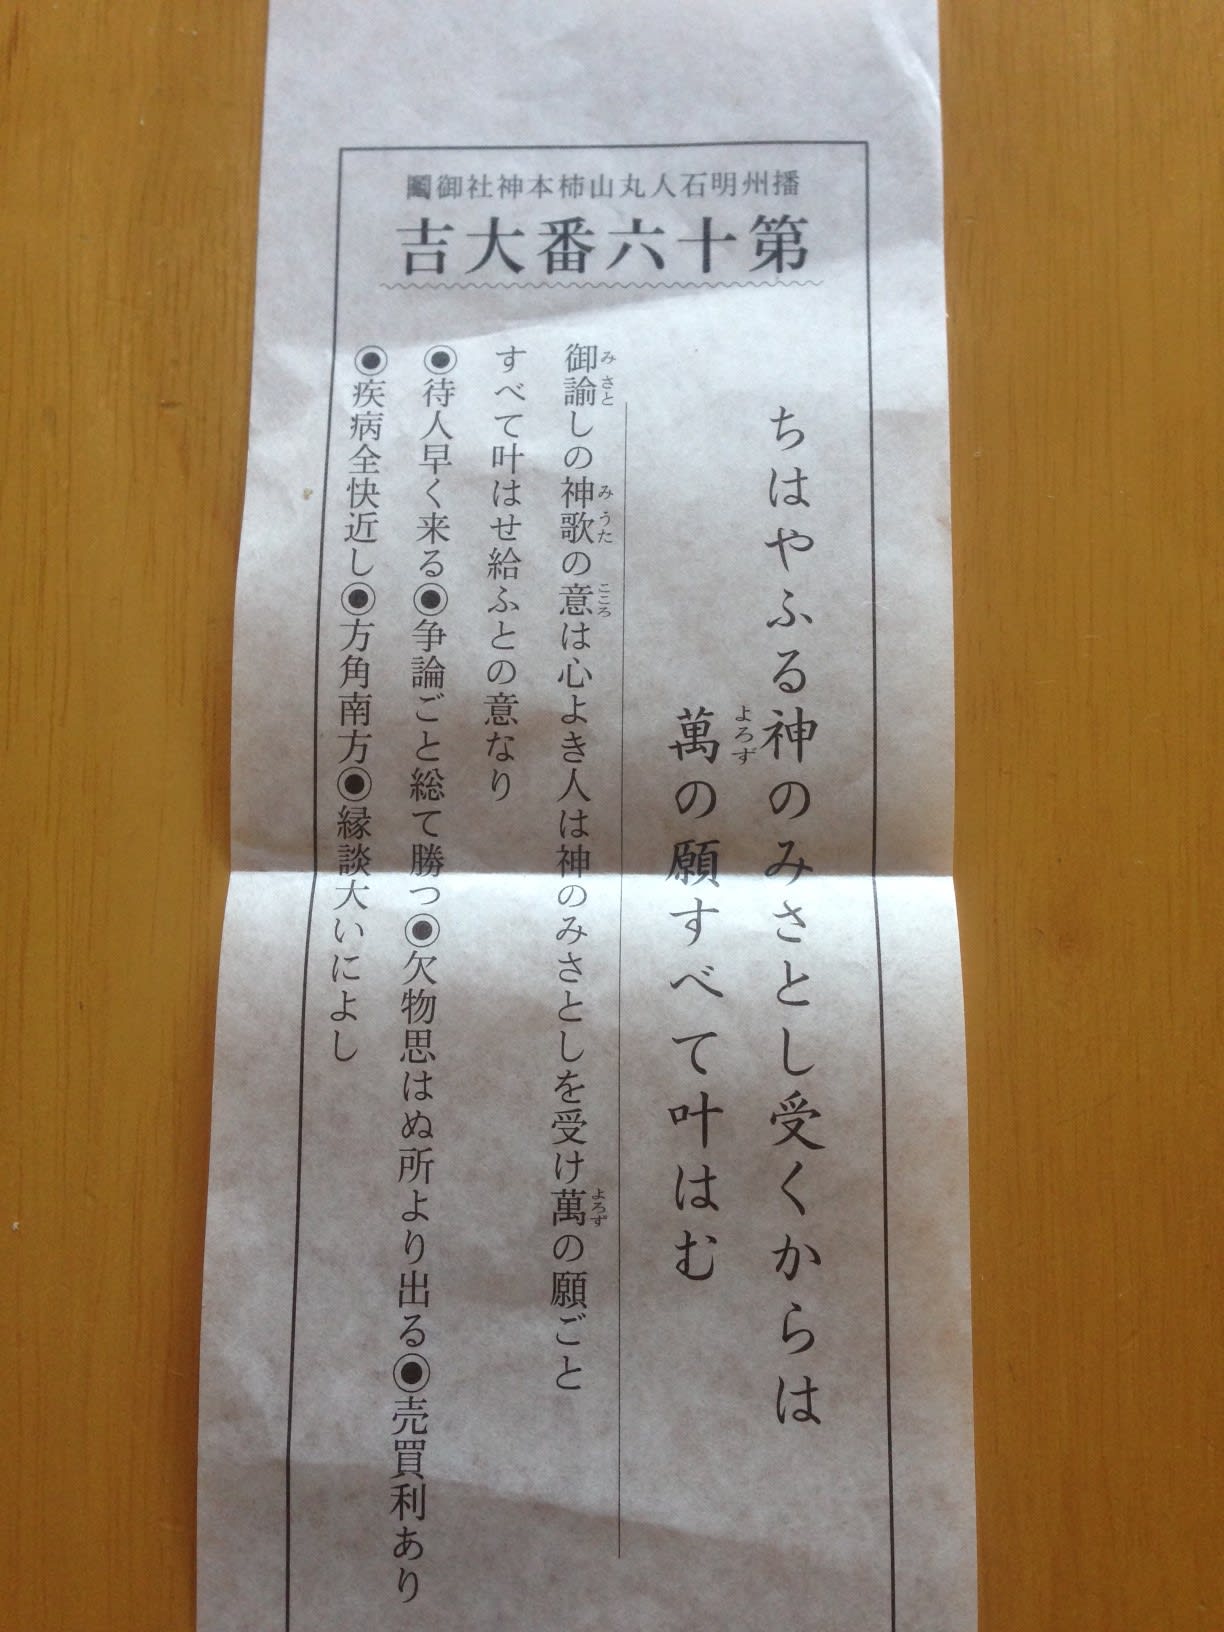 播州明石人丸山柿本神社御鬮
第十六番大吉
ちはやふる神のみさとし受くからは
よろず
萬の願すべて叶はむ
みさと みうた こころ よろず
御諭しの神歌の意は心よき人は神のみさとしを受け萬の願ごと
すべて叶はせ給ふとの意なり
◉待人早く来る◉争論ごと総て勝つ◉欠物思はぬ所より出る◉売買利あり
◉疾病全快近し◉方角南方◉縁談大いによし